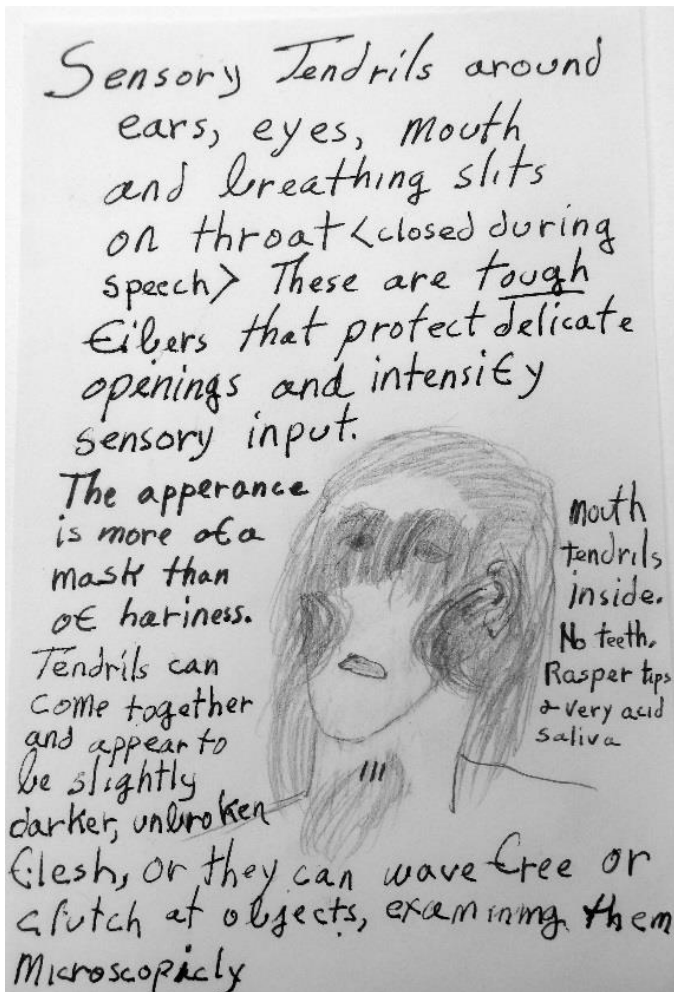 Sensory Tendrils around
ears, eyes, mouth
and breathing slits
on throat <closed during
speech> These are tough
fibers that protect delicate
openings and intensify
sensory input.
The apperance
is more of a
mask than
of hariness.
Tendrils can
come together
and appear to
be slightly
darker, unbroken
flesh, or they can wave free or
clutch at objects, examining them
microscopicly
mouth
tendrils
inside.
No teeth.
Rasper tips
& very acid
saliva